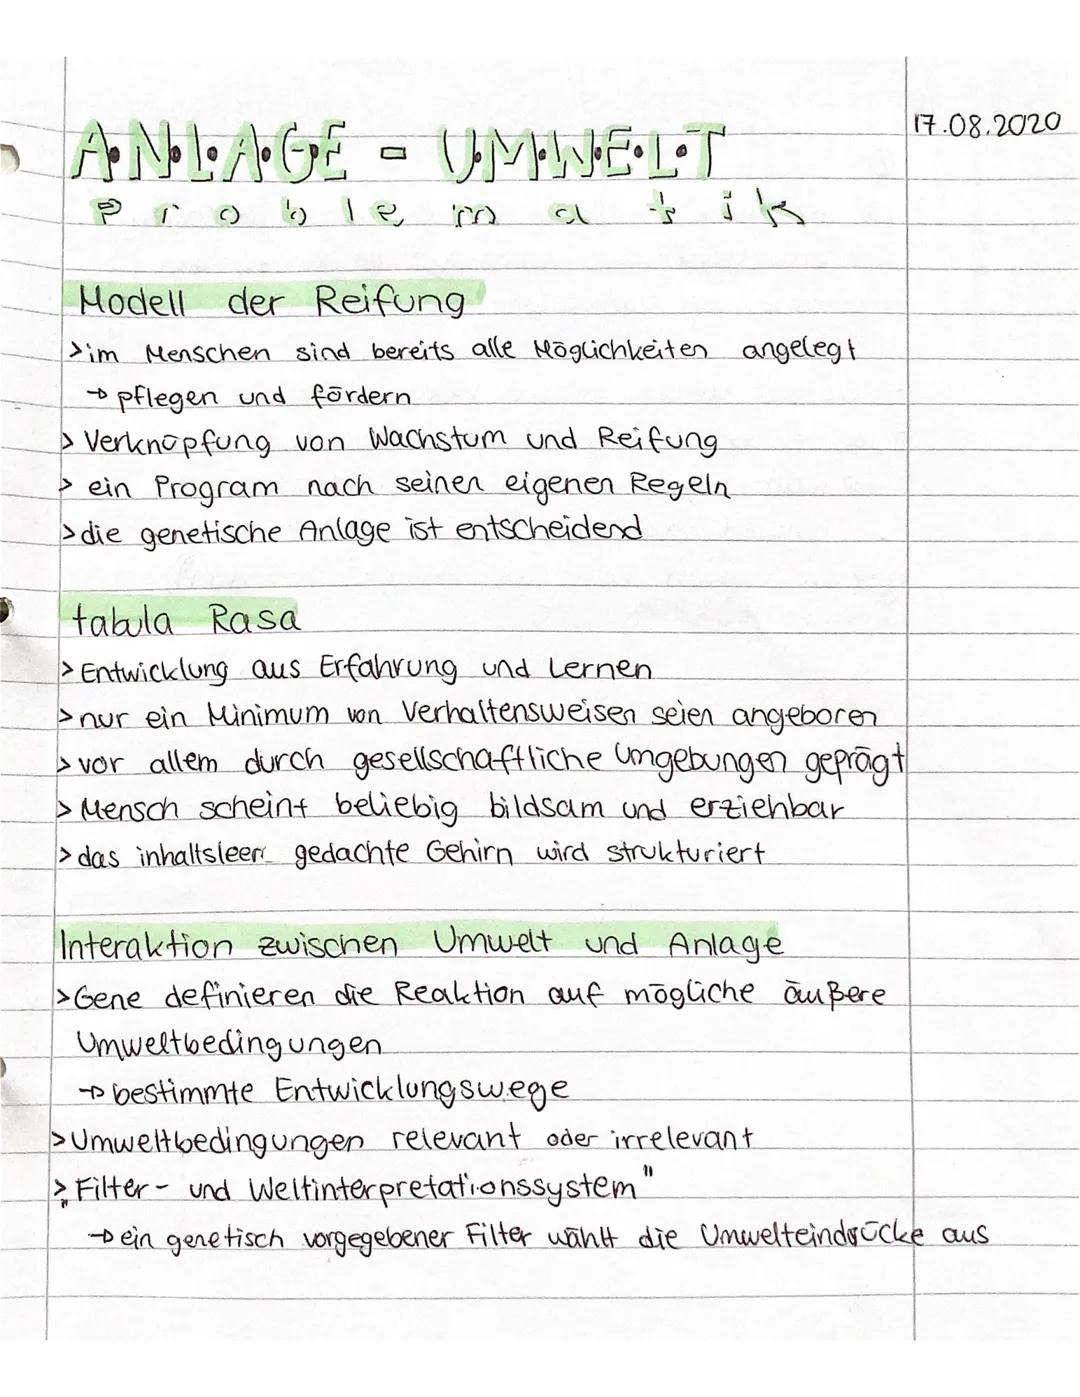 17.08.2020
ANLAGE - UMWELT
Problematik
Modell der Reifung
>im Menschen sind bereits alle Möglichkeiten angelegt
→ pflegen und fördern
> Verknüpfung von Wachstum und Reifung
> ein Program nach seinen eigenen Regeln
>die genetische Anlage ist entscheidend
tabula Rasa
> Entwicklung aus Erfahrung und Lernen
>nur ein Minimum von Verhaltensweisen seien angeboren
> vor allem durch gesellschaftliche Umgebungen geprägt
> Mensch scheint beliebig bildsam und erziehbar
> das inhaltsleer gedachte Gehirn wird strukturiert
Interaktion zwischen Umwelt und Anlage
>Gene definieren die Reaktion auf mögliche äußere
Umweltbedingungen
→ bestimmte Entwicklungswege
>Umweltbedingungen relevant oder irrelevant
> „Filter- und Weltinterpretationssystem"
→ ein genetisch vorgegebener Filter wählt die Umwelteindrücke aus